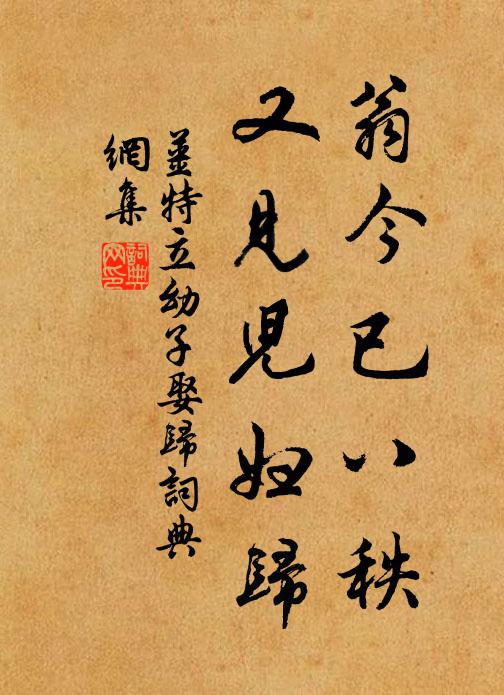 翁今已八秩
又見兒婦歸
姜特立幼子娶歸詞典
網集
詞典網印